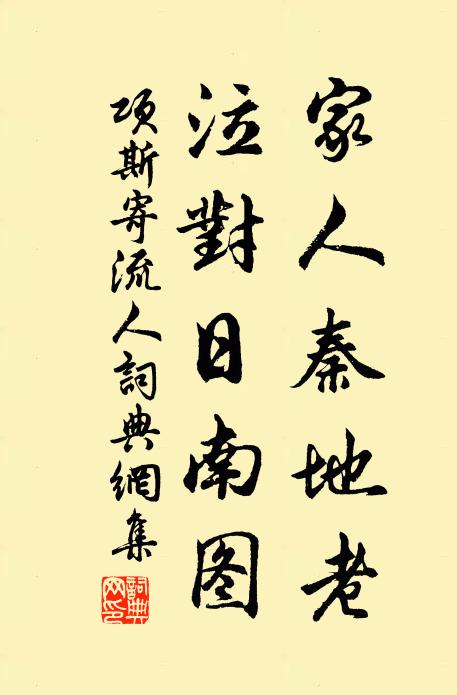 家人秦地老
泣對日南图
项斯寄流人詞典網集
詞典網印